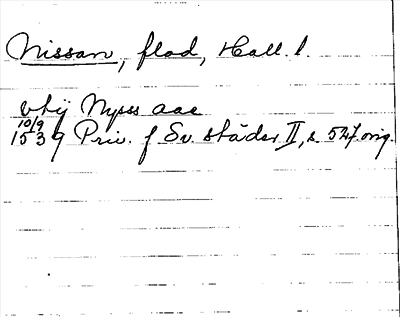 Nissan, flod, Hall. l.
vtij Nysss aae
10/9
1539 Priv. f Sv. städer II, s. 547. orig.